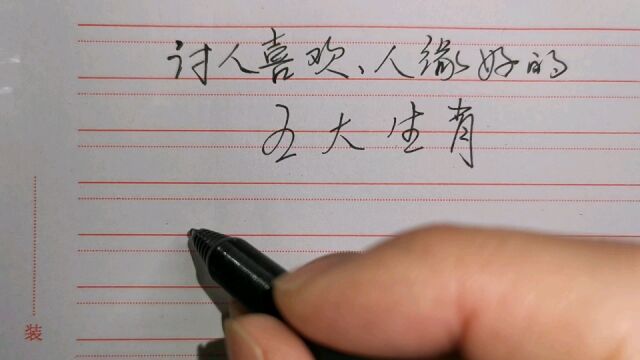 讨人喜欢、人缘好的
五大生肖
装